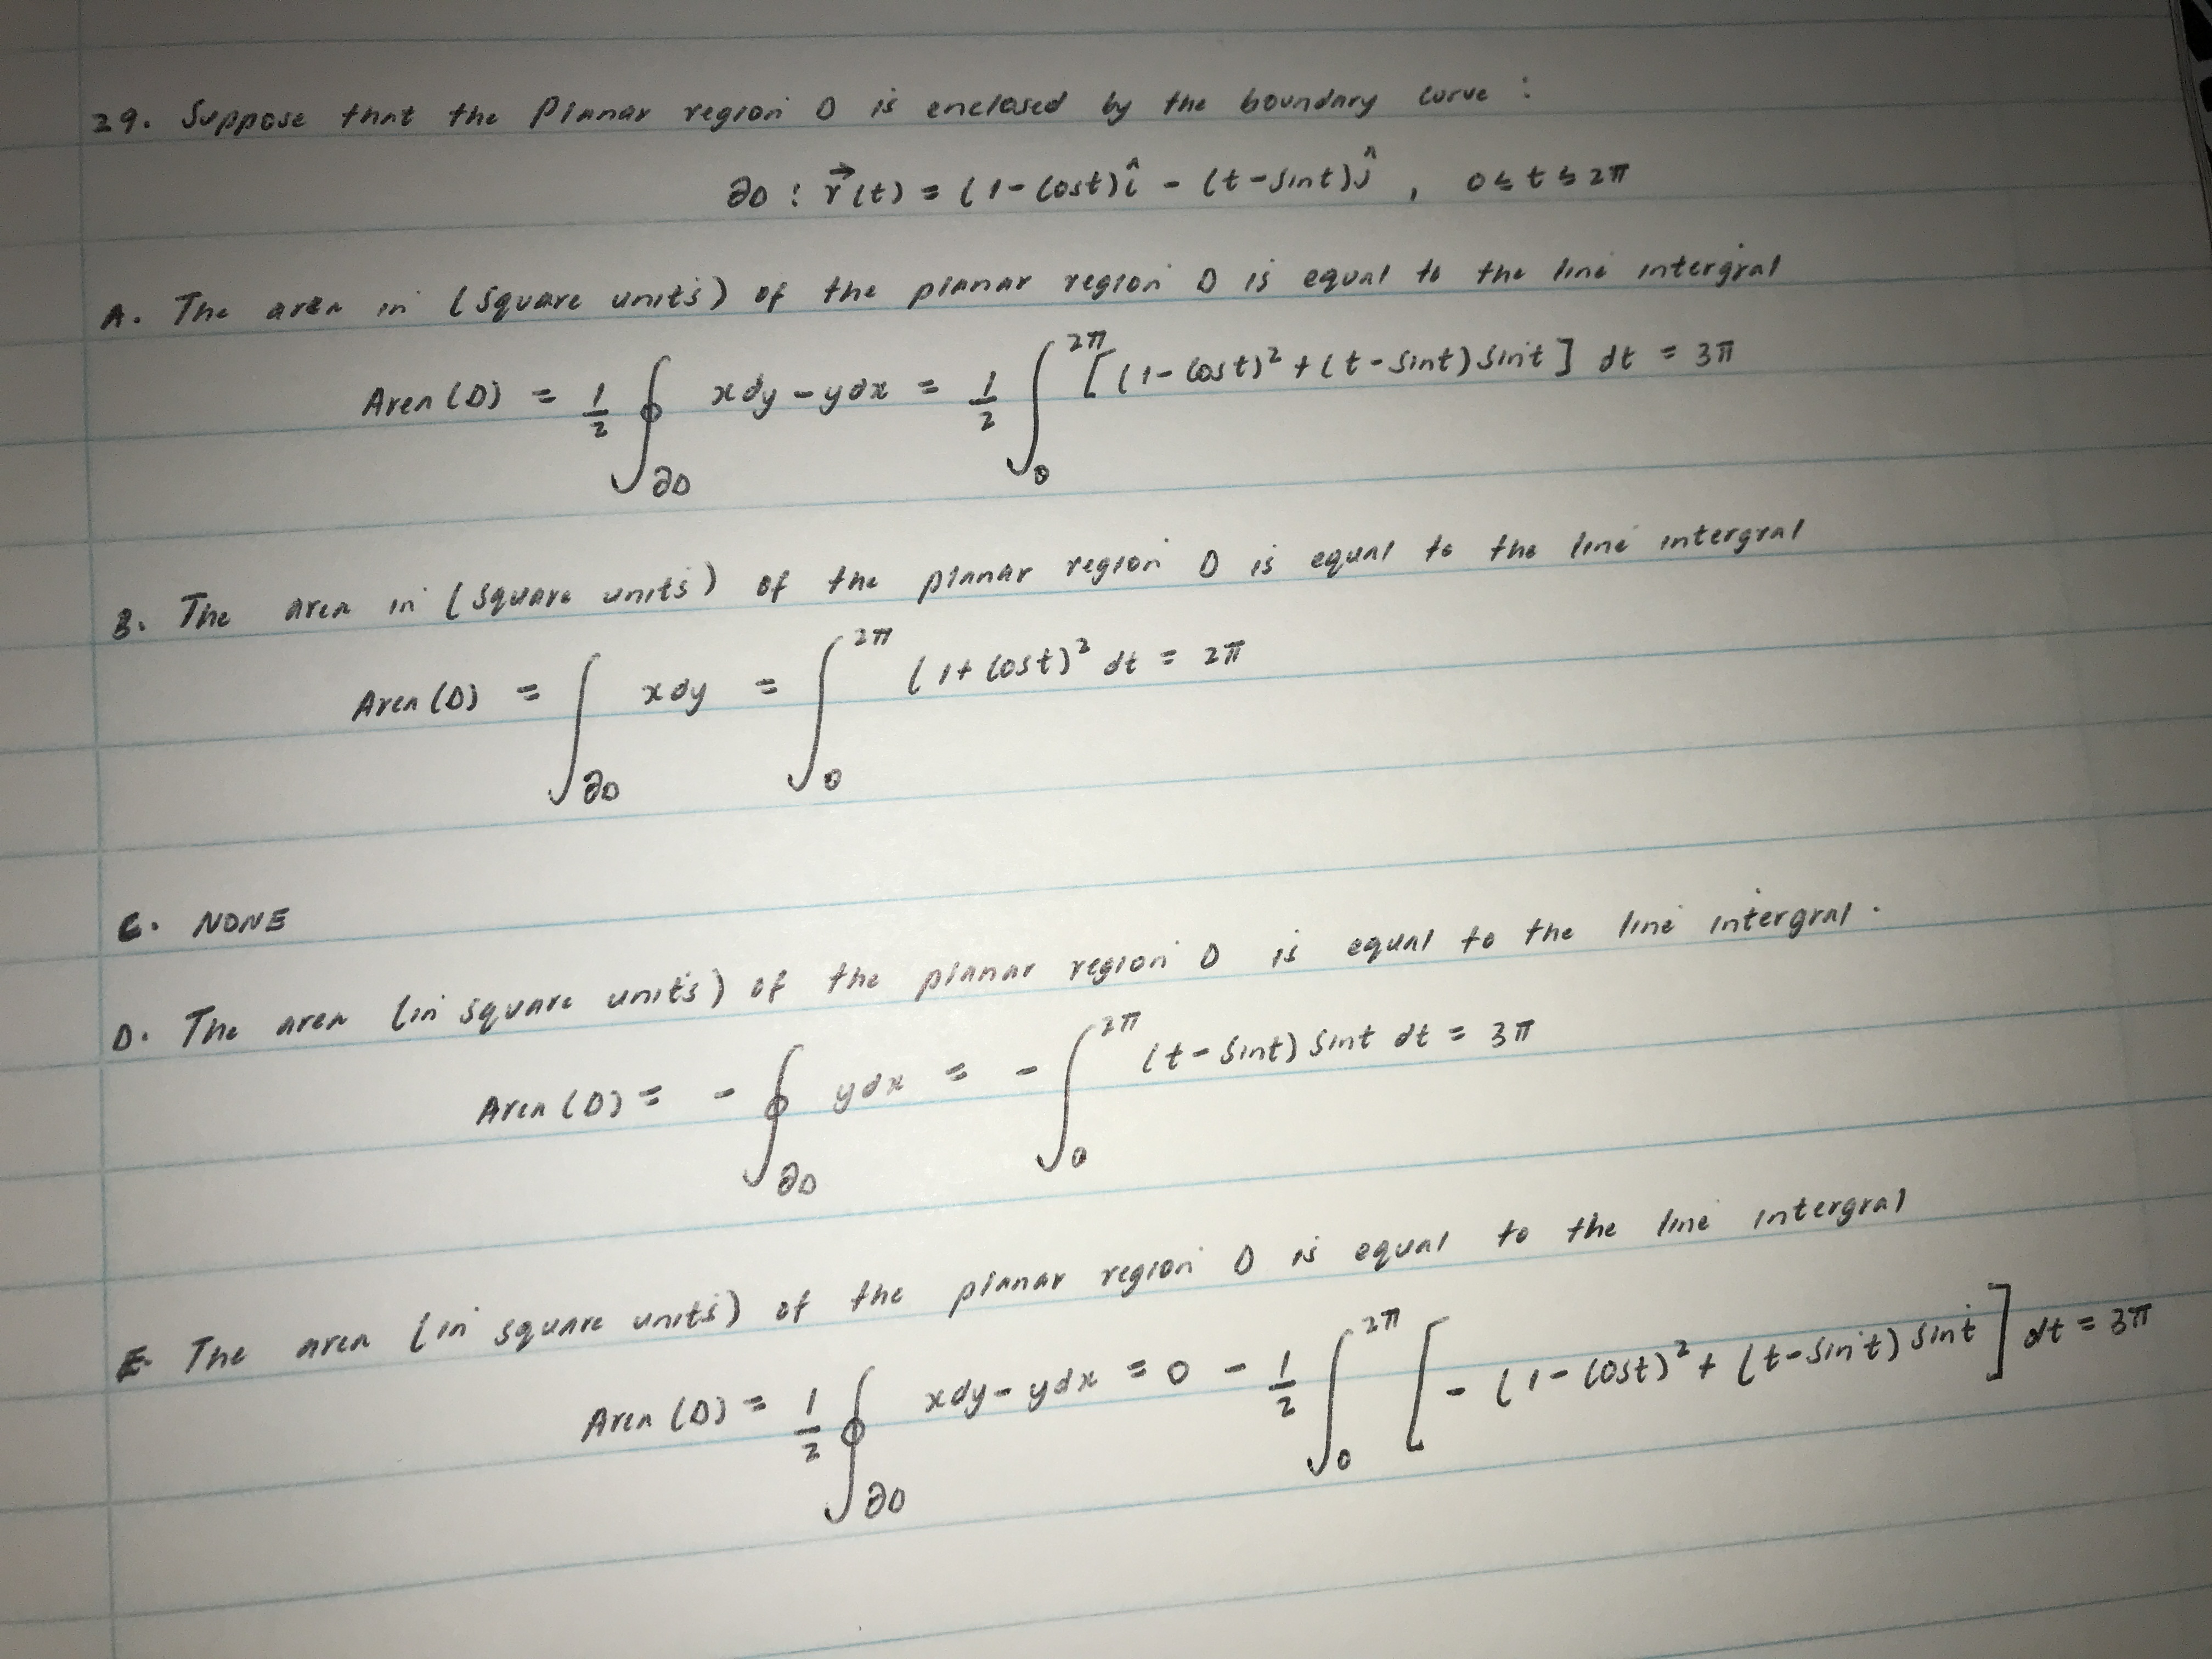 29. Suppose that the Planar region D is enclosed by the boundary curve :
∂D : r⃗(t) = (1-Cost)î - (t-Sint)ĵ , 0≤t≤2π
A. The area in (Square units) of the planar region D is equal to the line intergral
Area(D) = 1/2 ∮_∂D xdy-ydx = 1/2 ∫_0^2π [(1-Cost)² + (t-Sint)Sint] dt = 3π
B. The area in (Square units) of the planar region D is equal to the line intergral
Area(D) = ∫_∂D xdy = ∫_0^2π (1+Cost)² dt = 2π
C. NONE
D. The area (in square units) of the planar region D is equal to the line intergral.
Area(D) = - ∮_∂D ydx = - ∫_0^2π (t-Sint) Sint dt = 3π
E. The area (in square units) of the planar region D is equal to the line intergral
Area(D) = 1/2 ∮_∂D xdy-ydx = 0 - 1/2 ∫_0^2π [-(1-Cost)² + (t-Sint) Sint] dt = 3π